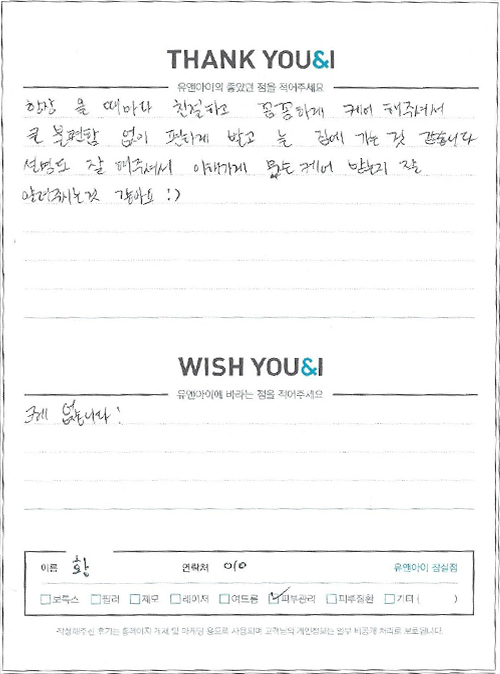 THANK YOU&I
유앤아이의 좋았던 점을 적어주세요
항상 올 때마다 친절하고 꼼꼼하게 케어 해주셔서
큰 불편함 없이 편하게 받고 늘 집에 가는 것 같습니다
설명도 잘 해주셔서 어떻게 무슨 케어 받는지 잘
알려주시는것 같아요 :)
WISH YOU&I
유앤아이에 바라는 점을 적어주세요
크게 없습니다!
이름 황 연락처 010 유앤아이 잠실점
보톡스 필러 제모 레이저 여드름 피부관리 피부질환 기타 ( )
작성해주신 후기는 홈페이지 게재 및 마케팅 용도로 사용되며 고객님의 개인정보는 일부 비공개 처리로 보호됩니다.